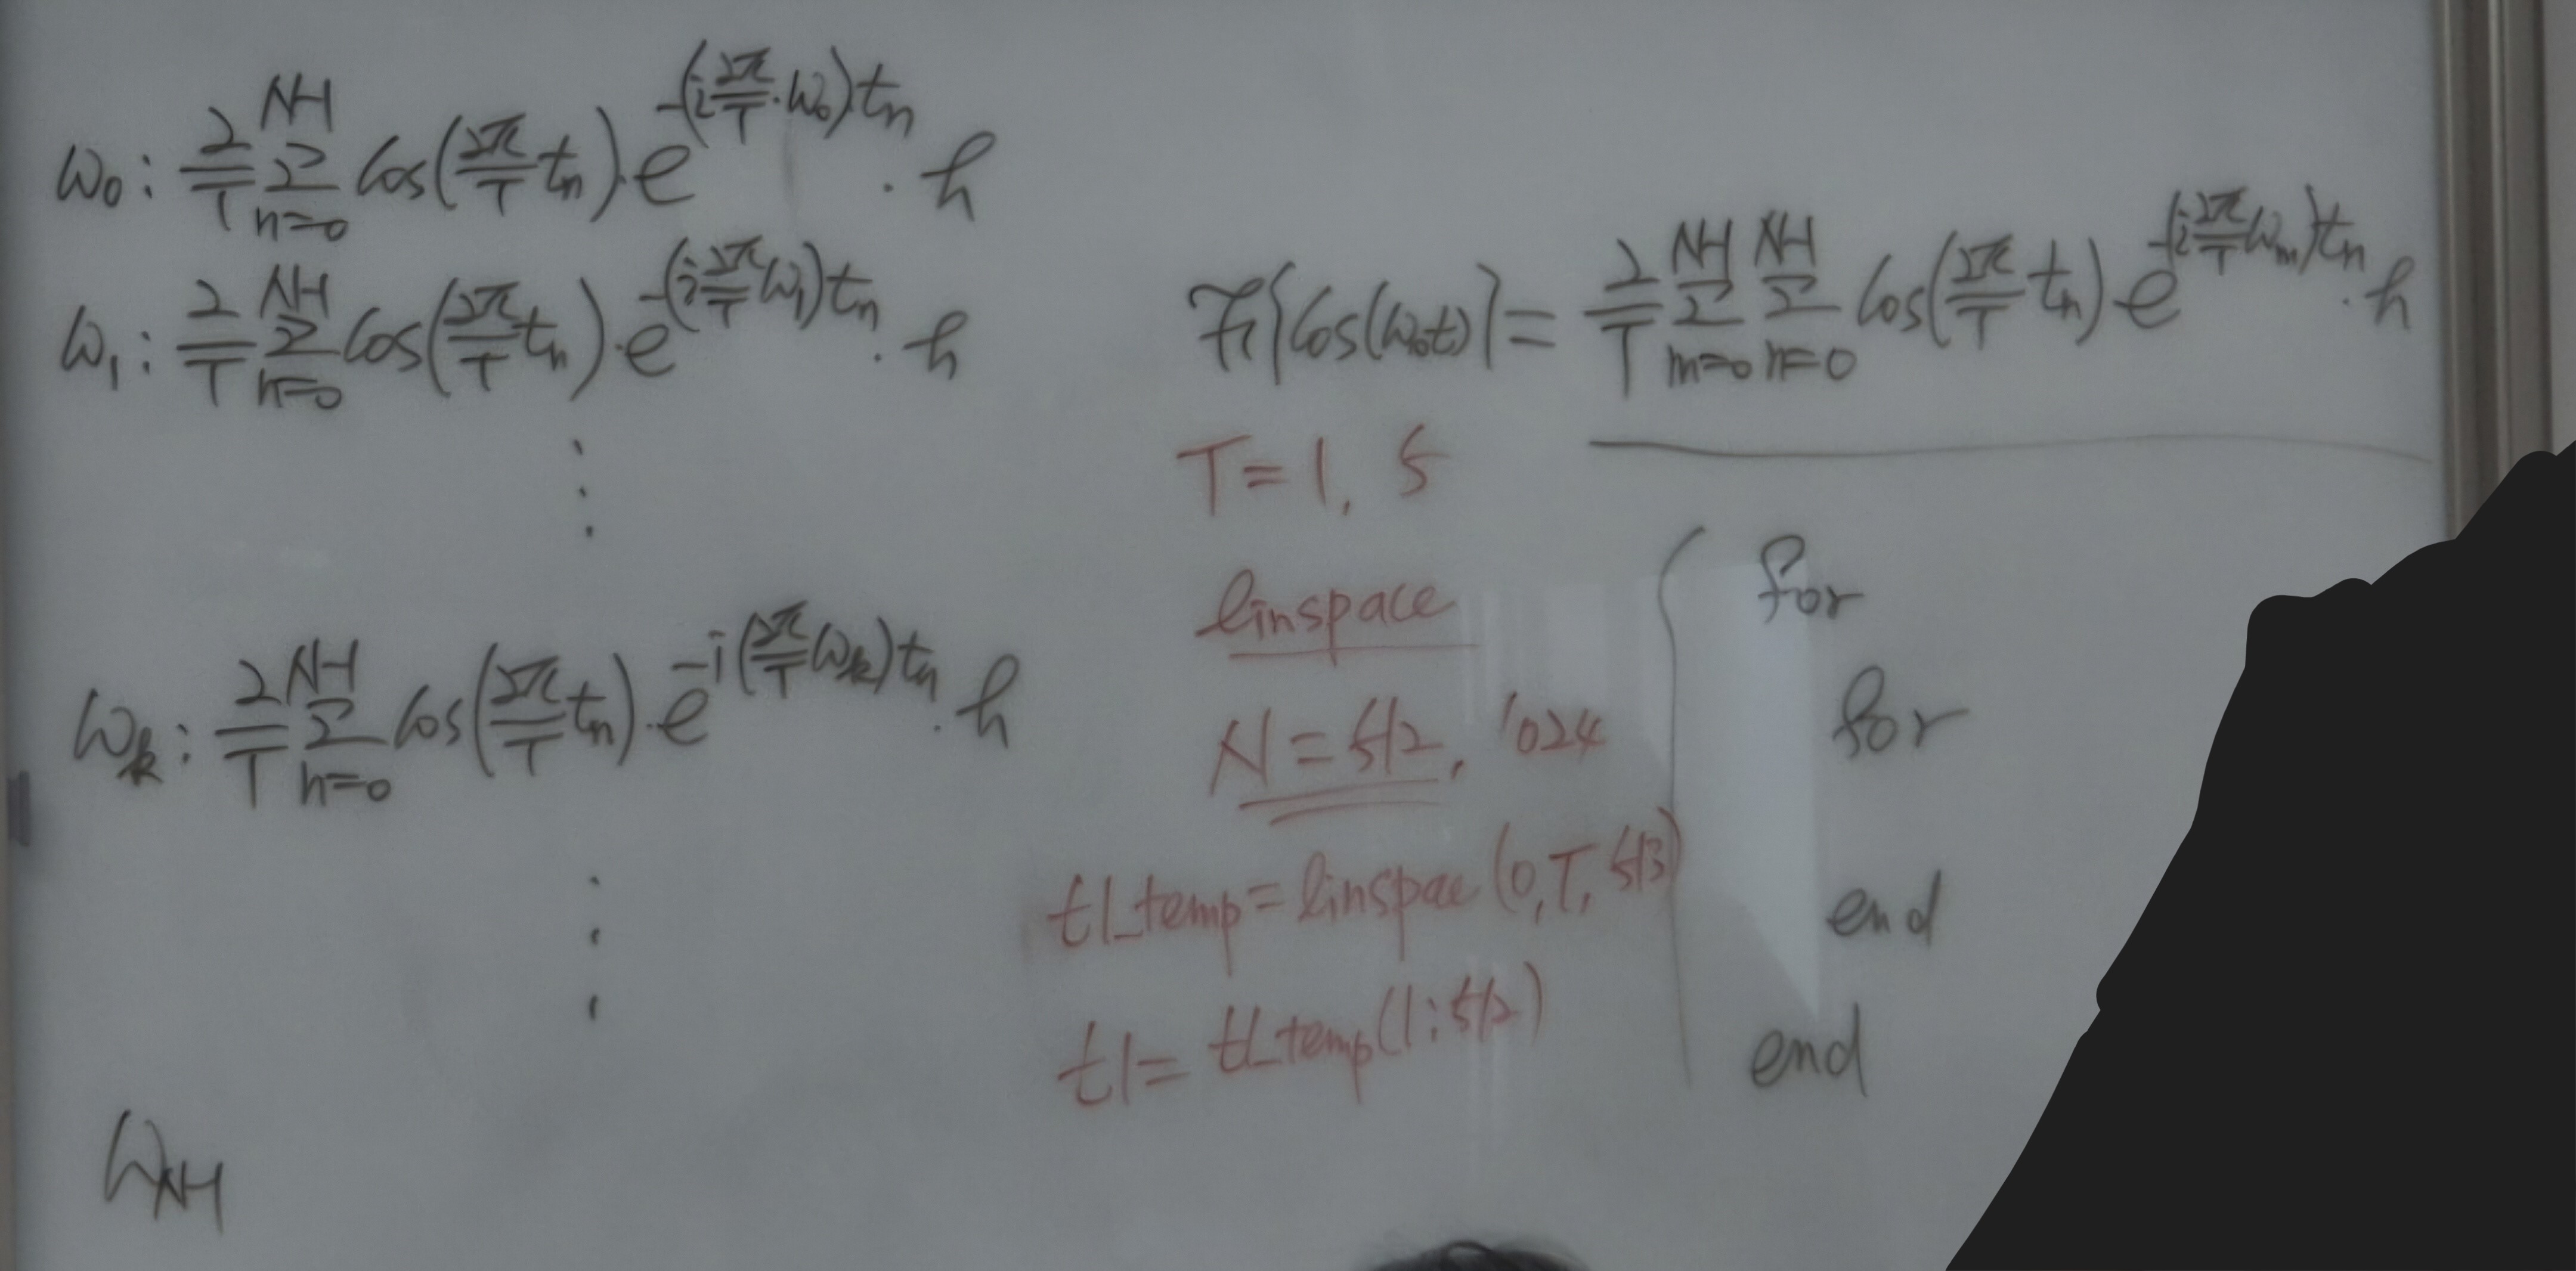 ω₀: 2/T Σ_{n=0}^{N-1} cos(2π/T tₙ)·e^{-(i 2π/T·ω₀)tₙ}·h
ω₁: 2/T Σ_{n=0}^{N-1} cos(2π/T tₙ)·e^{-(i 2π/T ω₁)tₙ}·h
⋮
ω_k: 2/T Σ_{n=0}^{N-1} cos(2π/T tₙ)·e^{-i(2π/T ω_k)tₙ}·h
⋮
ω_{N-1}
F{cos(ω₀t)} = 2/T Σ_{m=0}^{N-1} Σ_{n=0}^{N-1} cos(2π/T tₙ)·e^{-(i 2π/T ω_m)tₙ}·h
T=1, 5
linspace
N=512, 1024
t1_temp=linspae(0,T,513)
t1=t1_temp(1:512)
for
for
end
end